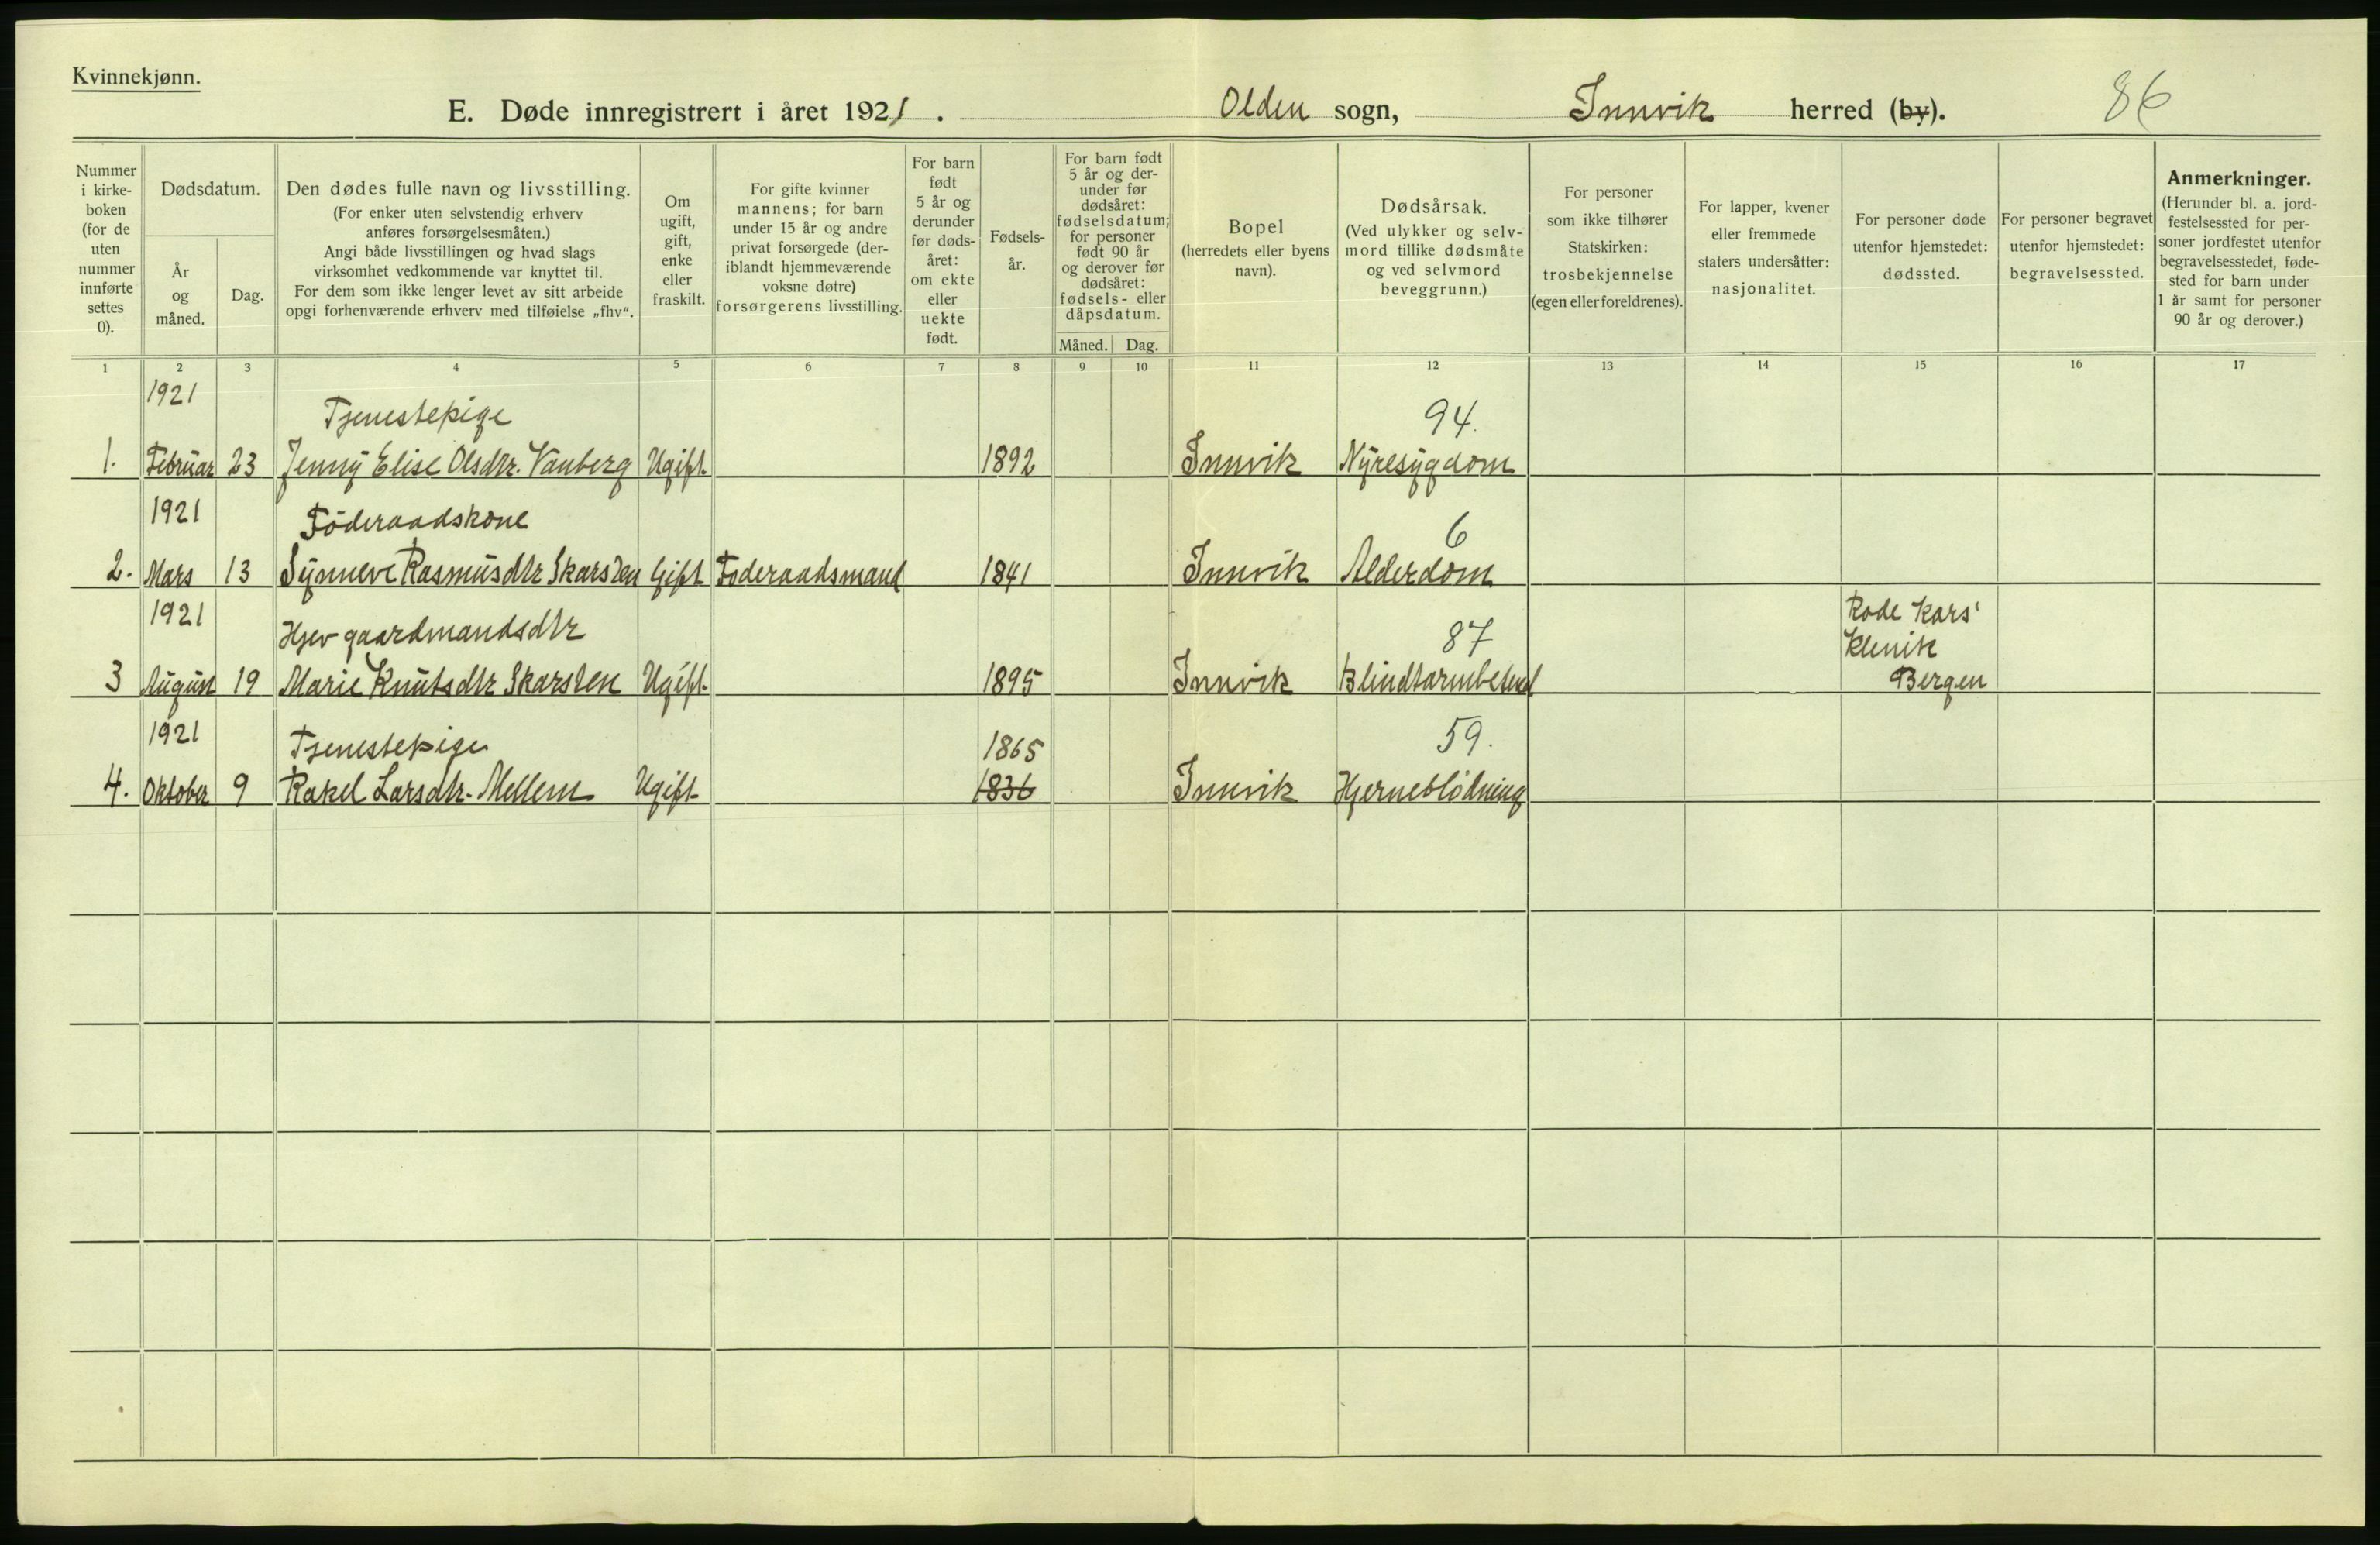 Kvinnekjønn.
E. Døde innregistrert i året 1921. Olden sogn, Innvik herred (by). 86
Nummer i kirke- boken (for de uten nummer innførte settes 0).
Dødsdatum.
År og måned.
Dag.
Den dødes fulle navn og livsstilling.
(For enker uten selvstendig erhverv
anføres forsørgelsesmåten.)
Angi både livsstillingen og hvad slags
virksomhet vedkommende var knyttet til.
For dem som ikke lenger levet av sitt arbeide
opgi forhenværende erhverv med tilføielse „fhv“.
Om ugift, gift, enke eller fraskilt.
For gifte kvinner
mannens; for barn
under 15 år og andre
privat forsørgede (der-
iblandt hjemmeværende
voksne døtre)
forsørgerens livsstilling.
For barn født 5 år og derunder før døds- året: om ekte eller uekte født.
Fødsels- år.
For barn født
5 år og der-
under før
dødsåret:
fødselsdatum;
for personer
født 90 år
og derover før
dødsåret:
fødsels- eller
dåpsdatum.
Måned. Dag.
Bopel
(herredets eller byens
navn).
Dødsårsak.
(Ved ulykker og selv-
mord tillike dødsmåte
og ved selvmord
beveggrunn.)
For personer
som ikke tilhører
Statskirken:
trosbekjennelse
(egen eller foreldrenes).
For lapper, kvener
eller fremmede
staters undersåtter:
nasjonalitet.
For personer døde
utenfor hjemstedet:
dødssted.
For personer begravet
utenfor hjemstedet:
begravelsessted.
Anmerkninger.
(Herunder bl. a. jord-
festelsessted for per-
soner jordfestet utenfor
begravelsesstedet, føde-
sted for barn under
1 år samt for personer
90 år og derover.)
1 2 3 4 5 6 7 8 9 10 11 12 13 14 15 16 17
1921 Tjenestepige 94.
1. Februar 23 Jenny Elise Olsdtr. Vanberg Ugift 1892 Innvik Nyresygdom
1921 Föderaadskone 6
2. Mars 13 Synneve Rasmusdtr Skarsten Gift Foderaadsmand 1841 Innvik Alderdom
1921 Hjev gaardmandsdtr 87 Rode Kors'
Klenik
3 August 19 Marie Knutsdtr Skarsten Ugift 1895 Innvik Blindtarmbetend Bergen
1921 Tjenestepige 1865 59.
4. Oktober 9 Rakel Larsdtr. Mellem Ugift 1836 Innvik Hjerneblödning